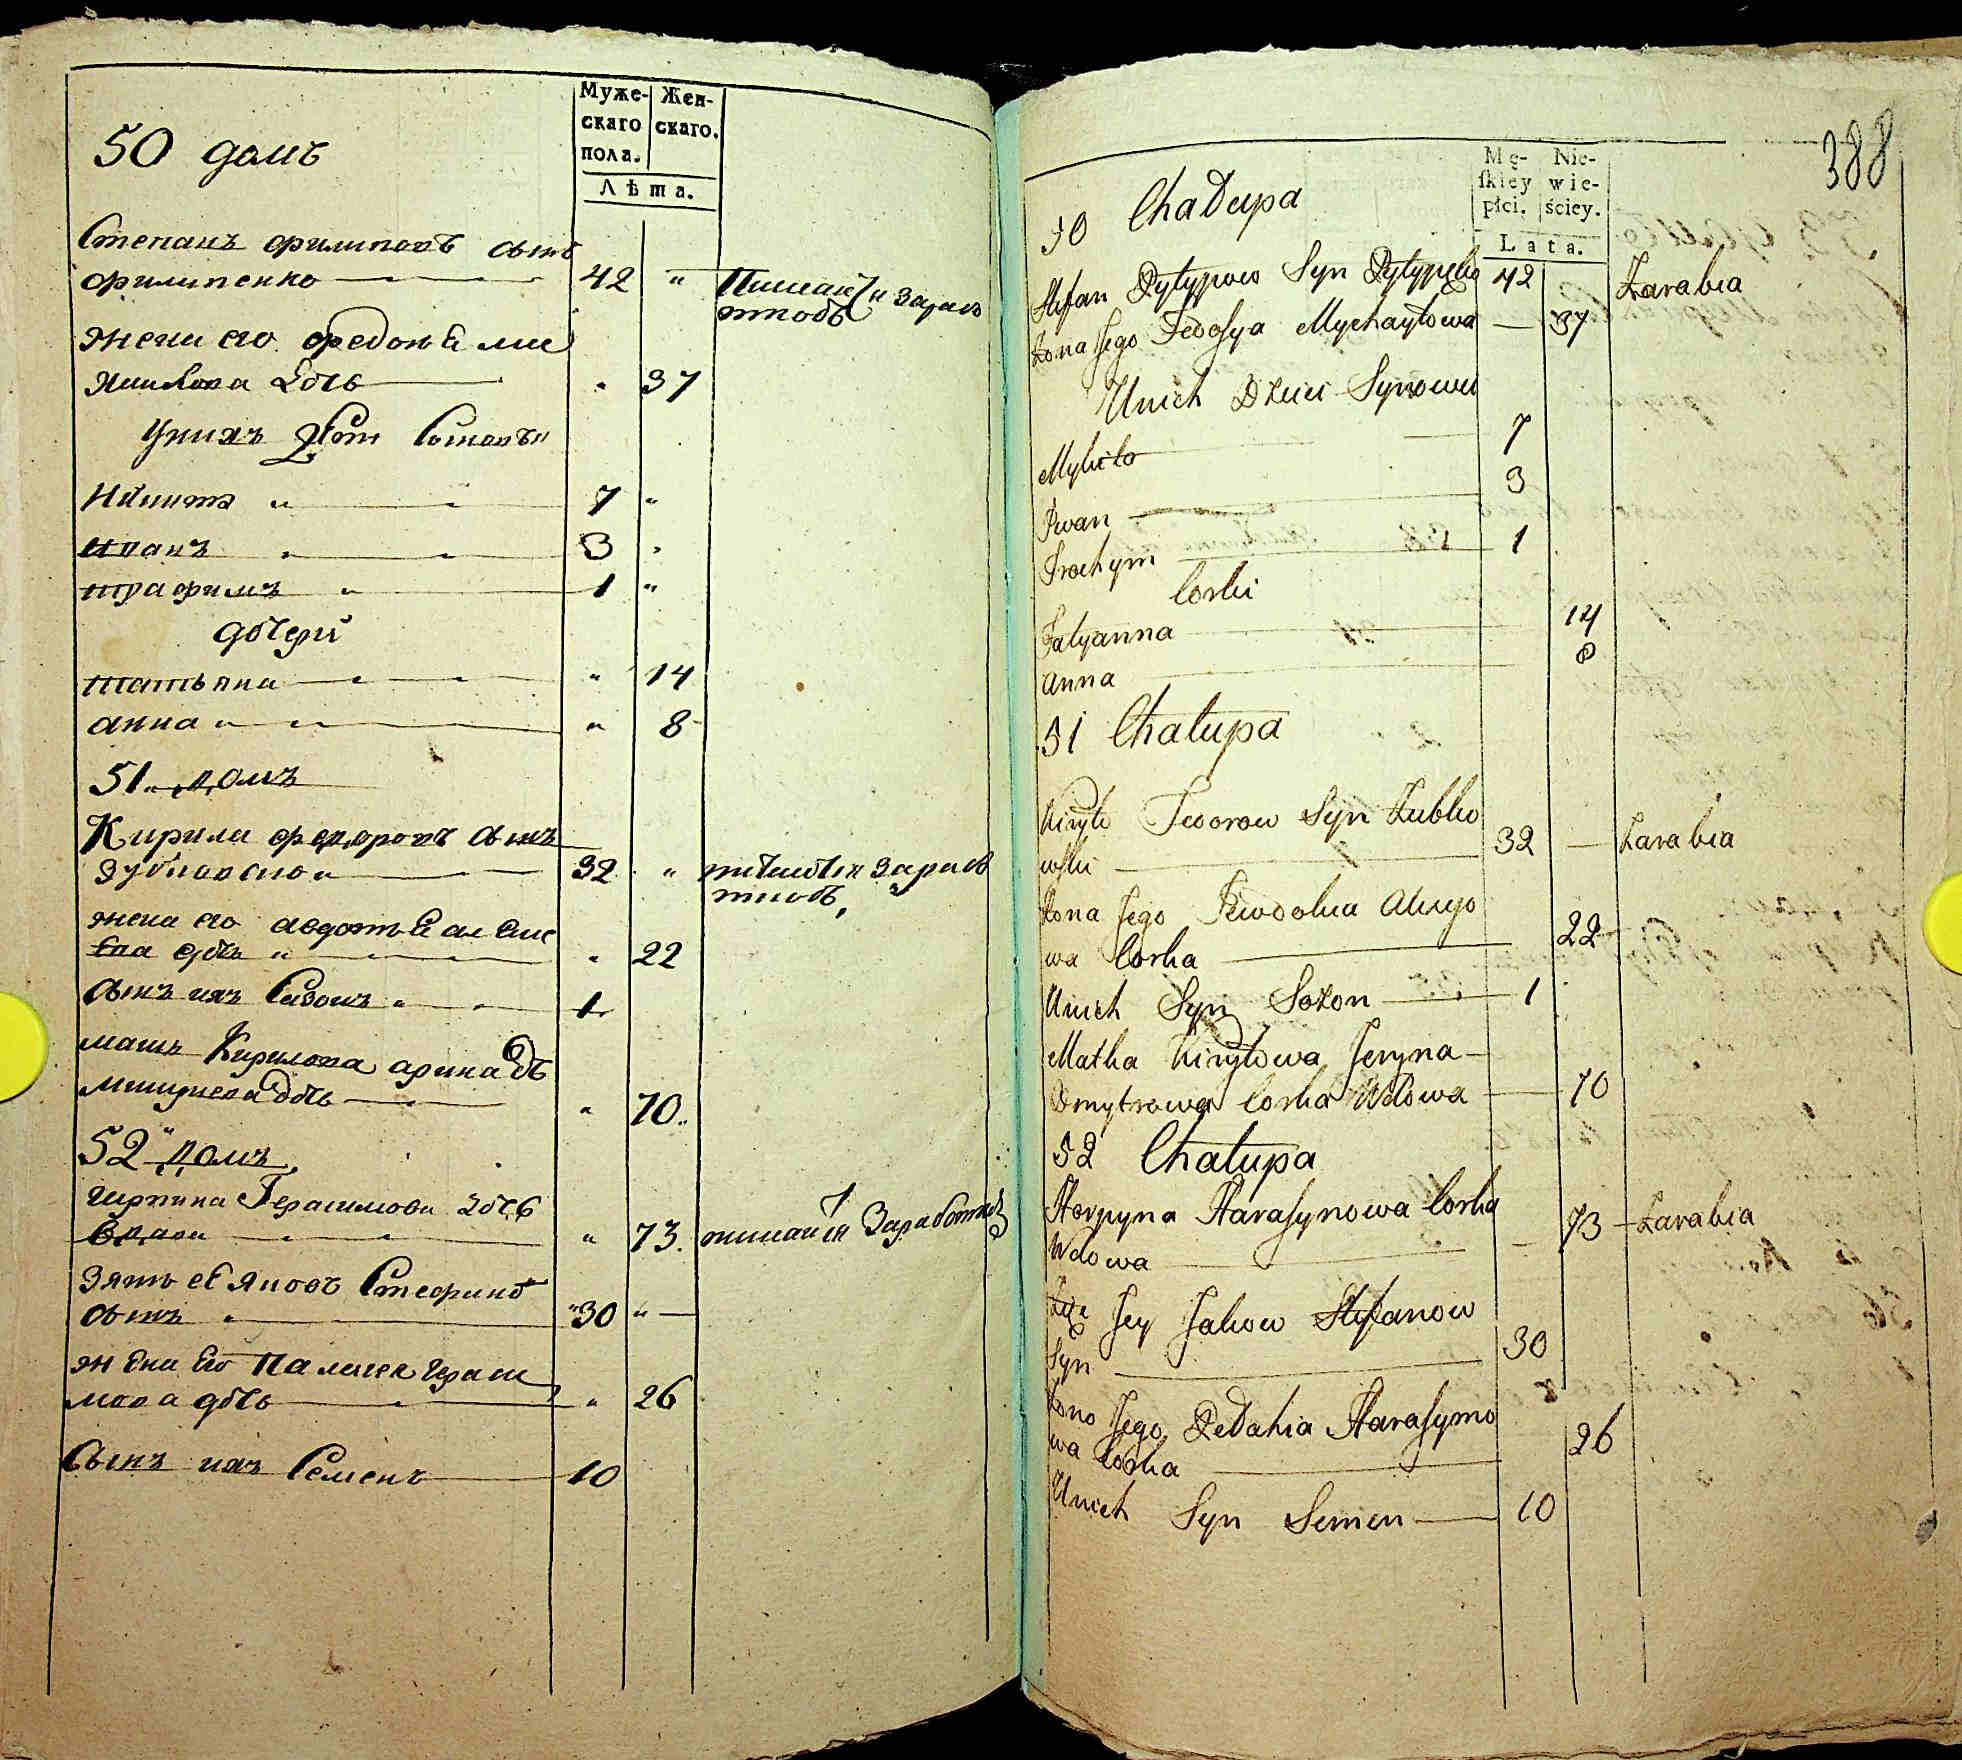 Муже-
скаго
пола.
Жен-
скаго.
Лѣта.
50 домъ
Степанъ филиповъ сынъ
филипенко 42 "
жена его федосья ми
хайлова дочь " 37
У нихъ дети Сыновья
Никита " 7 "
иванъ " 3 "
трафимъ " 1 "
дочери
татьяна " 14
анна " " 8
51 домъ
Кирила федоровъ сынъ
зубковско 32 " питается зарабо
тков,
жена его авдотья але
ева дочь " " 22
сынъ ихъ Сазонъ " 1
мать Кирилова арина
дочь " 70
52 домъ
Герасимова
вдова " 73. питается Заработков
зять её яковъ Стефанов
сынъ " 30 " —
жена Его Палагея гераси
мова дочь " 26
Сынъ ихъ Семенъ 10
388
Mę-
skiey
płci.
Nie-
wie-
ściey.
Lata.
50 Chałupa
Stefan Pylypow Syn Pylypenko 42 Zarabia
Żona Jego Fedosya Mychayłowa — 37
U nich Dzieci Synowie
Mykito 7
Iwan 3
Trochym 1
Corki
Tatyanna 14
Anna 8
51 Chałupa
Kiryło Fedorow Syn Zubko
wski 32 — Zarabia
Żona Jego Jewdokia
wa Corka 22
U nich Syn Sozon — 1
Matka Kiryłowa Jeryna —
Dmytrowa Corka Wdowa — 70
52 Chałupa
Horpyna Harasymowa Corka
Wdowa 73 — Zarabia
Zięć Jey Jakow Stefanow
Syn 30
Żona Jego Pełahia Harasymo
wa Corka 26
U nich Syn Semen — 10